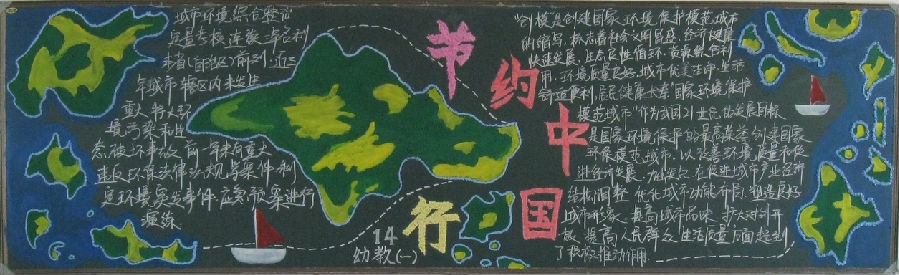 城市环境综合整治
定量考核连续三年名列
本省(自治区)前列,近三
年城市辖区内未发生
重大、特大环
境污染和生
态破坏事故,前一年未有重大
违反环保法律法规的案件,制
定环境突发事件应急预案并进行
演练
节约中国行
14
幼教(一)
"创模"是创建国家环境保护模范城市
的缩写,标志着社会文明昌盛,经济健康
快速发展,生态良性循环,资源合理利
用,环境质量良好,城市优美洁净,生活
舒适便利,居民健康长寿"国家环境保护
模范城市"作为我国21世纪城市发展目标
是国家环境保护的最高荣誉,创建国家
环保模范城市,以改善环境质量、促
进经济发展
结构调整,优化城市功能
城市形象,提高城市品味,扩大对外开
放,提高人民群众生活质量方面起到
了积极推动作用.